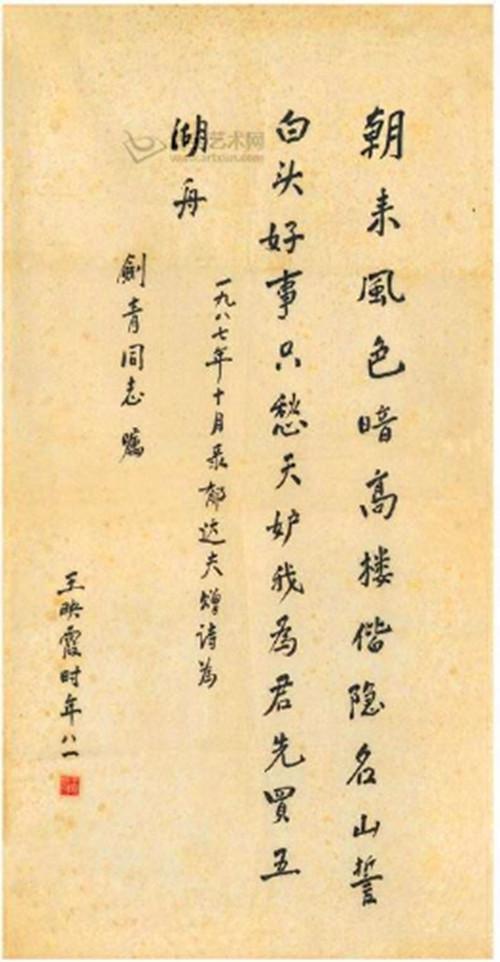 朝来風色暗高楼偕隐名山誓
白头好事只愁天妒我為君先買五
湖舟
一九八七年十月录郁达夫赠诗為
劍青同志嘱
王映霞时年八一
艺术网
www.artxun.com